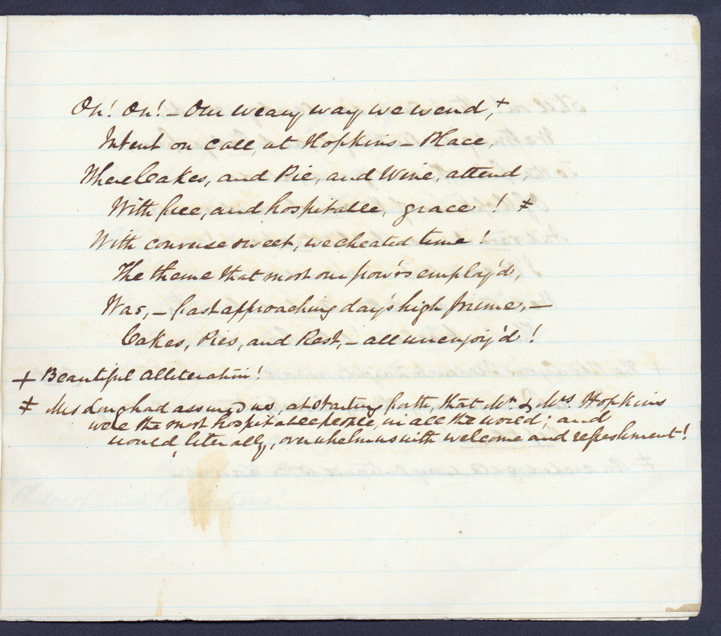 On! On! – Our weary, way, we wend, +
Intent on call, at Hopkins – Place,
Where Cakes, and Pie, and Wine, attend,
With free, and hospitable, grace! ‡
With converse sweet, we cheated time!
The theme that most our pow'rs employ'd,
Was, – fast approaching day's high prime, –
Cakes, Pies, and Rest, – all unenjoy'd!
+ Beautiful alliteration!
‡ Mrs Long had assured us, at starting forth, that Mr. & Mrs Hopkins
were the most hospitable people, in all the world; and
would, literally, overwhelm us with welcome and refreshment!